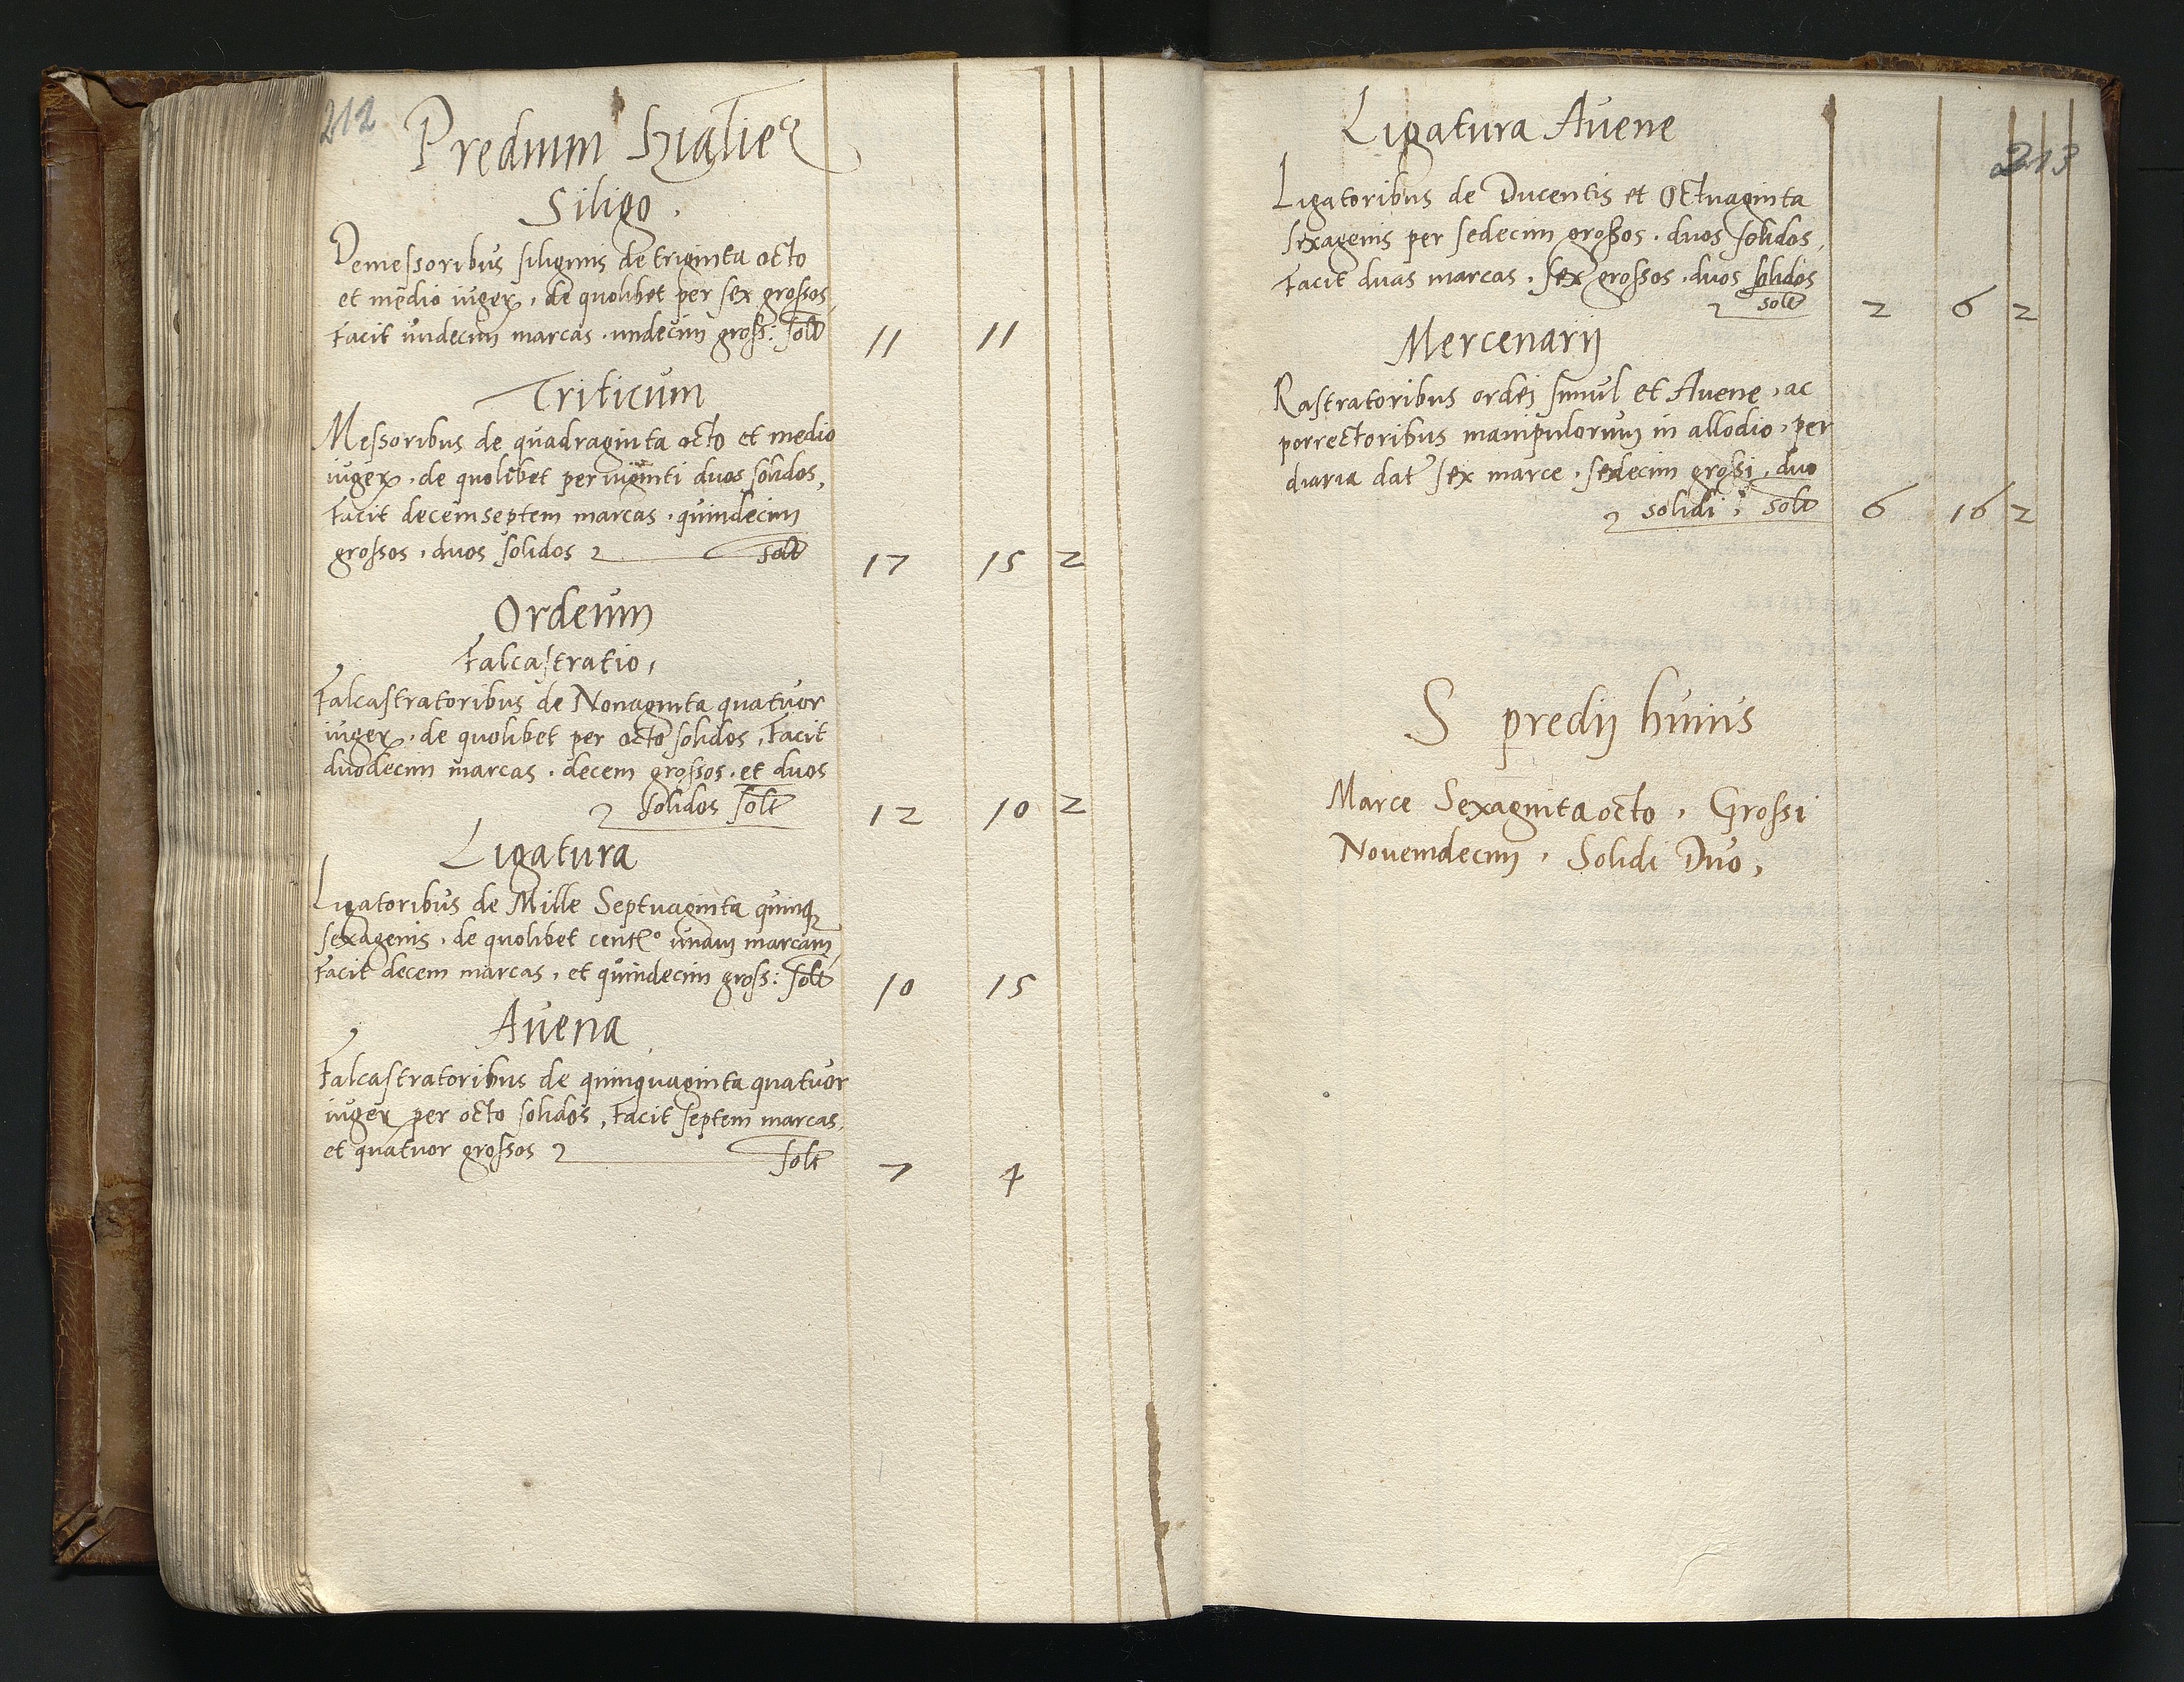 212
Predium Szalie
Siligo.
Demessoribus siliginis de triginta octo
et medio iuger, de quolibet per sex grossos
Facit undecim marcas. undecim gross: solt 11 11
Triticum
Messoribus de quadraginta octo et medio
iuger. de quolibet per viginti duos solidos,
Facit decemseptem marcas. quindecim
grossos, duos solidos solt 17 15 2
Ordeum
Falcastratio,
Falcastratoribus de Nonaginta quatuor
iuger. de quolibet per octo solidos, Facit
duodecim marcas. decem grossos. et duos
solidos solt 12 10 2
Ligatura
Ligatoribus de Mille Septuaginta quinq
sexagenis. de quolibet cento unam marcam
Facit decem marcas, et quindecim gross: solt 10 15
Avena
Falcastratoribus de quinquaginta quatuor
iuger per octo solidos, Facit septem marcas,
et quatuor grossos solt 7 4
213
Ligatura Avene
Ligatoribus de Ducentis et Octuaginta
sexagenis per sedecim grossos. duos solidos,
Facit duas marcas. sex grossos. duos solidos
solt 2 6 2
Mercenarij
Rastratoribus ordei simul et Avene, ac
porrectoribus manipulorum in allodio, per
diaria dat sex marce. sedecim grossi, duo
solidi: solt 6 16 2
S predij huius
Marce Sexaginta octo, Grossi
Novemdecim, Solidi Duo,